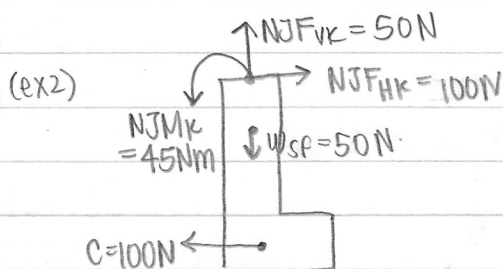 NJF_VK = 50N
(ex2)
NJF_HK = 100N
NJM_K
= 45Nm
W_SF = 50N
C = 100N